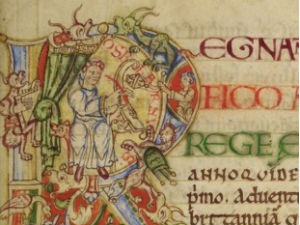 REGNA
FICO A
REGE E
ANNO QUIDE
pmo. Aduentu
brittannia